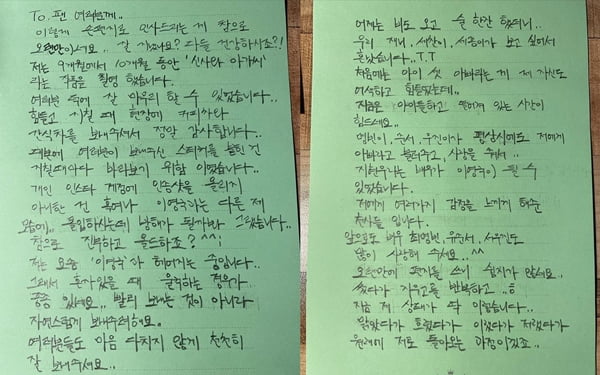 To. 팬 여러분께..
이렇게 손편지로 인사드리는 게 참으로
오랜만이네요.. 잘 지내시나요? 다들 건강하시죠?!
저는 9개월에서 10개월 동안 '신사와 아가씨'
라는 작품을 촬영 했습니다.
여러분 덕에 잘 마무리 할 수 있었습니다..
힘들고 지칠 때 현장에 커피차와
간식차를 보내주셔서 정말 감사합니다..
대본에 여러분이 보내주신 스티커를 붙인 건
지칠때마다 바라보기 위함 이였습니다..
개인 인스타 계정에 인증샷을 올리지
아니한 건 혹여나 이영국과는 다른 제
모습에.. 몰입하시는데 방해가 될까봐 그랬습니다..
참으로 진부하고 올드하죠? ^^;
저는 요즘 '이영국'과 헤어지는 중입니다..
그래서 혼자있을 때 울컥하는 경우가
종종 있네요.. 빨리 보내는 것이 아니라
자연스럽게 보내주려해요.
여러분들도 마음 다치지 않게 천천히
잘 보내주세요..
어제는 비도 오고 술 한잔 했더니..
우리 재니, 세찬이, 세종이가 보고 싶어서
혼났습니다.. T.T
처음에는 아이 셋 아빠라는 게 제 자신도
어색하고 힘들었는데..
지금은 아이들하고 떨어져 있는 시간이
힘드네요..
명빈이, 준서, 우진이가 평상시에도 저에게
아빠라고 불러주고, 사랑을 줘서..
지현우라는 배우가 이영국이 될 수
있었습니다.
저에게 여러가지 감정을 느끼게 해준
천사들 입니다.
앞으로도 배우 최명빈, 유준서, 서우진도
많이 사랑해 주세요.. ^^
오랜만에 쓰려니 쉽지가 않네요.
썼다가 지우고를 반복하고..
지금 제 상태가 딱 이렇습니다..
맑았다가 흐렸다가 이랬다가 저랬다가
원래에 저로 돌아오는 과정이겠죠..